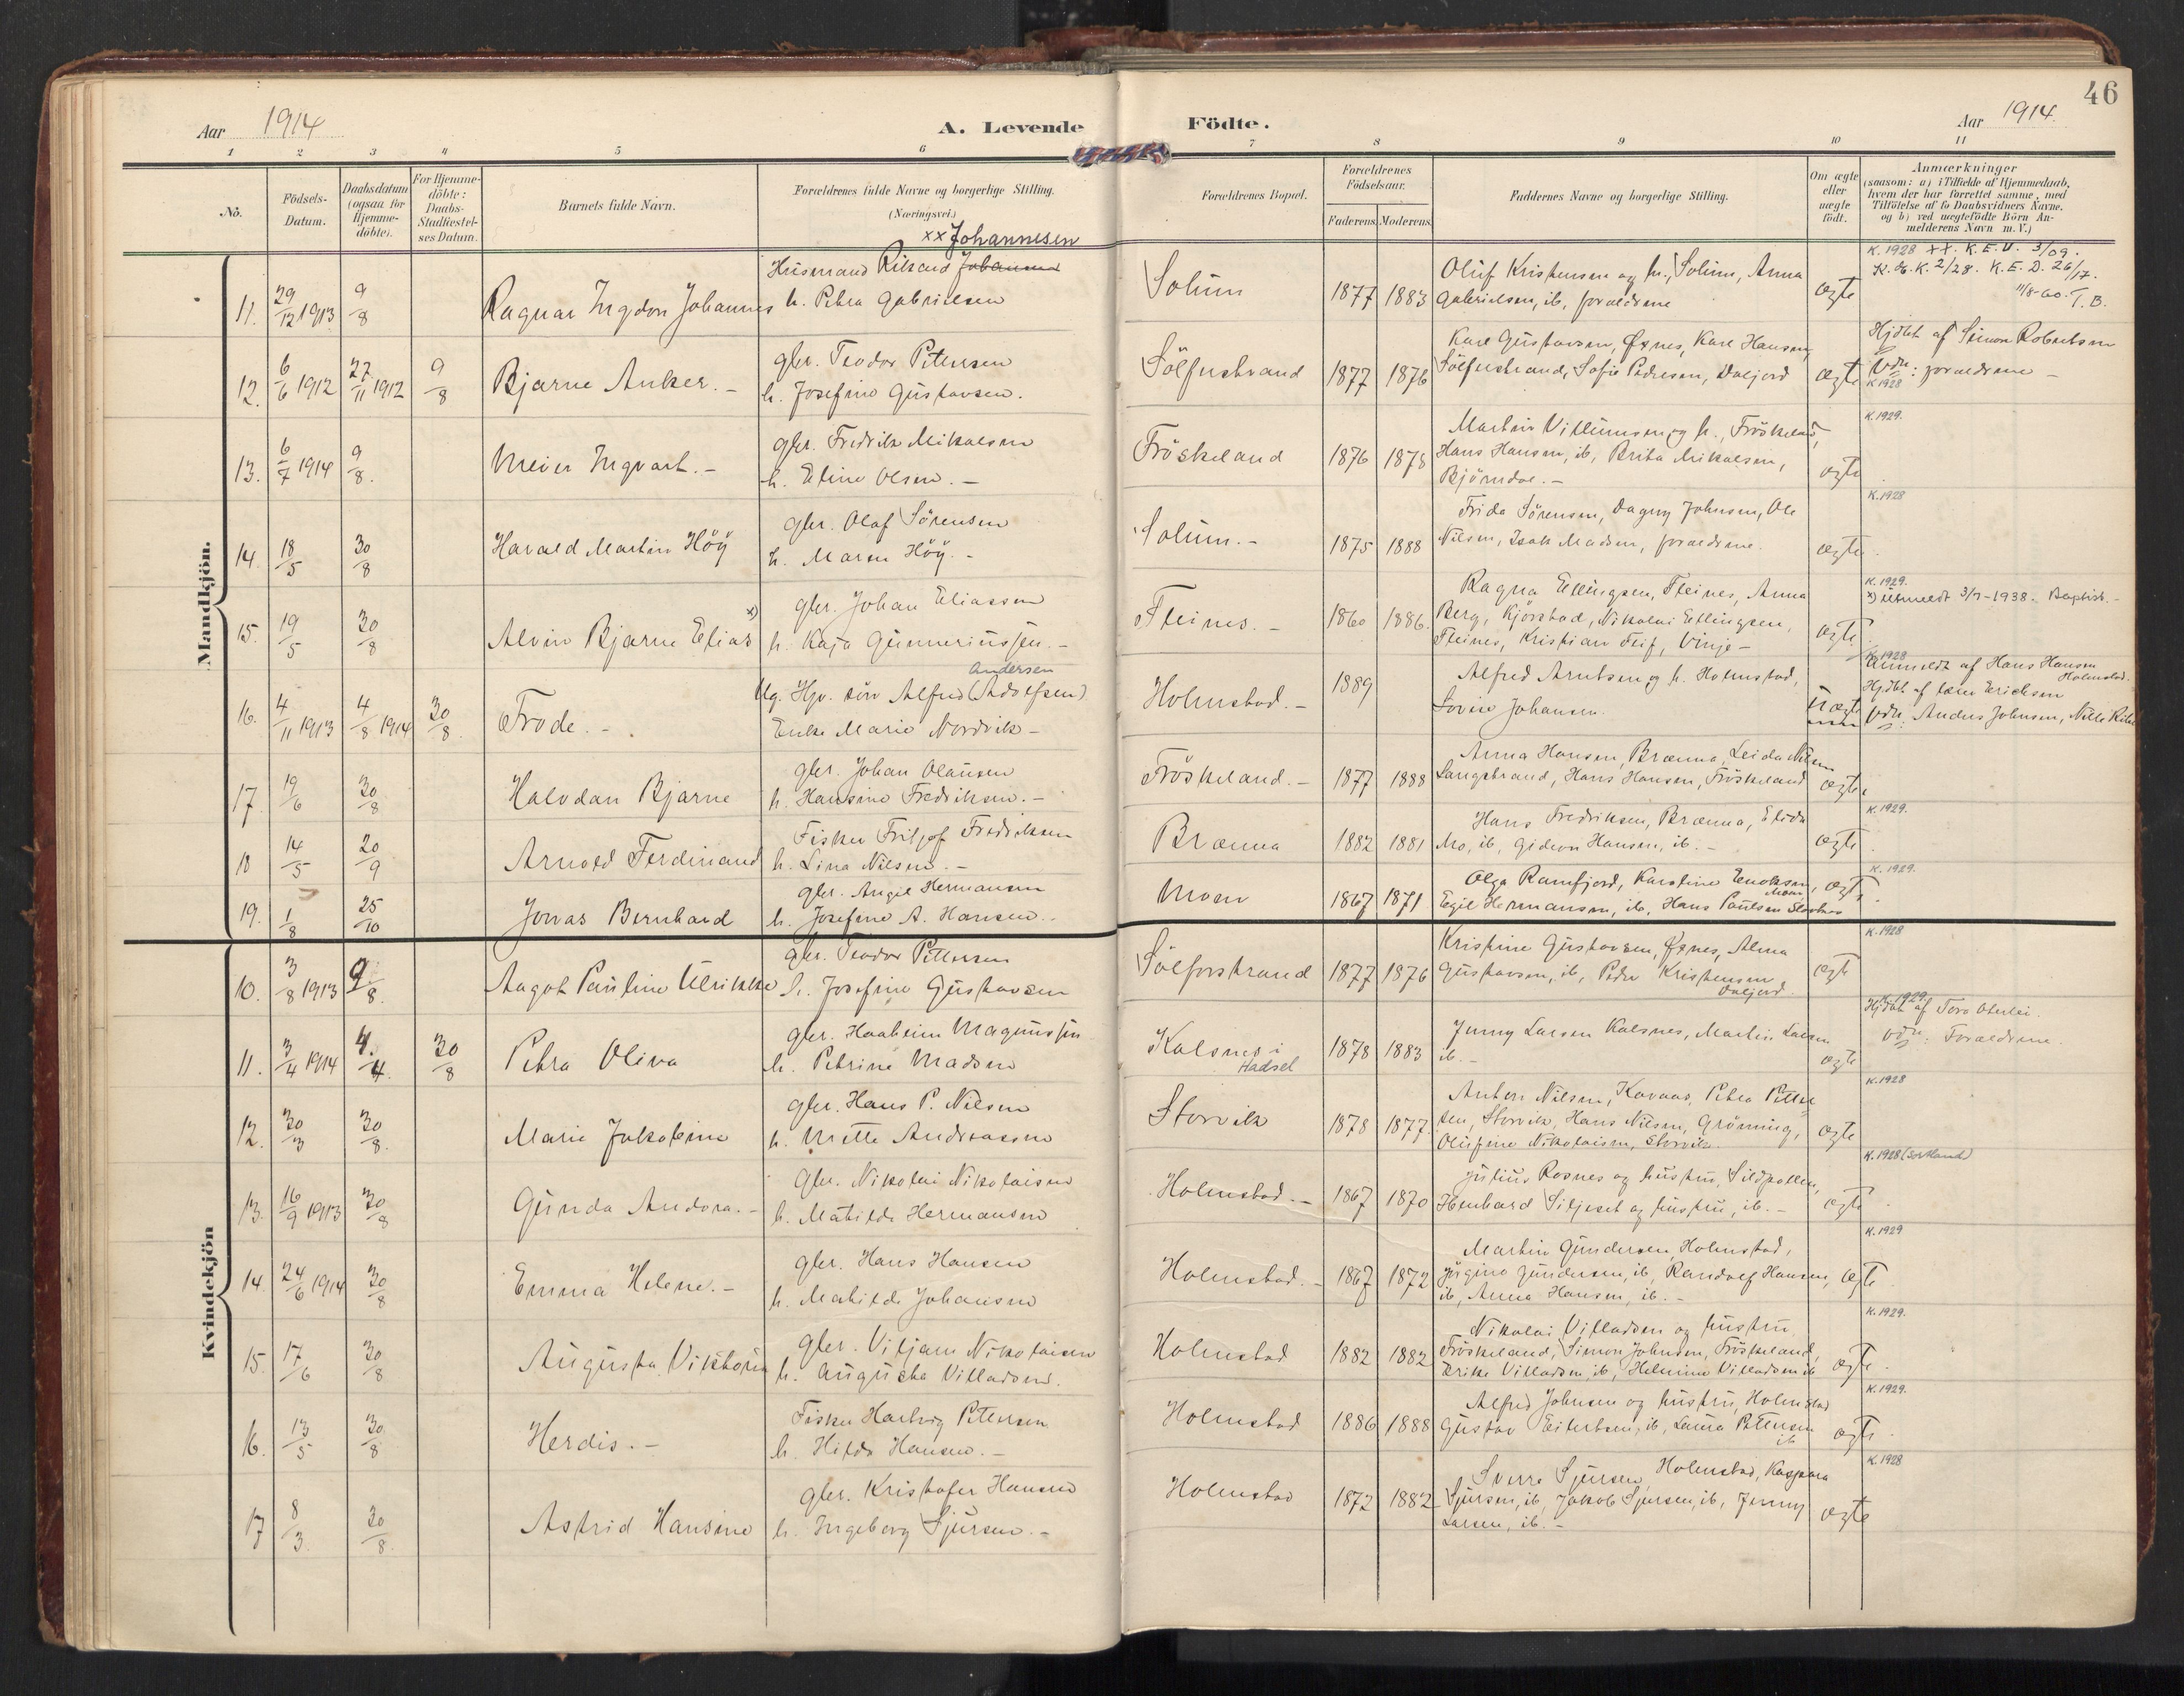 46
Aar 1914
A. Levende Födte.
Aar 1914.
1 2 3 4 5 6 7 8 9 10 11
No.
Födsels-Datum.
Daabsdatum (ogsaa for Hjemme-döbte).
For Hjemme-döbte: Daabs-Stadfestel-ses Datum.
Barnets fulde Navn.
Forældrenes fulde Navne og borgerlige Stilling.
(Næringsvei.)
Forældrenes Bopæl.
Forældrenes Födselsaar.
Faderens Moderens
Faddernes Navne og borgerlige Stilling.
Om ægte eller uægte födt.
Anmærkninger
(saasom: a) i Tilfælde af Hjemmedaab,
hvem der har forrettet samme, med
Tilföielse af to Daabsvidners Navne.
og b) ved uægtefödte Börn An-
melderens Navn m. V.)
Mandkjön.
xx Johannesen
11. 29/12 1913 9/8 Ragnar Ingdon Johannes
Husmand Rikard Johansen
h. Petra Gabrielsen
Solum 1877 1883
Oluf Kristensen og h., Solum, Anna
Gabrielsen, ib, forældrene
ægte
K. 1928 XX. K. E. U. 3/09.
K. E. D. 26/17.
11/8-60. T. B.
12. 6/6 1912 27/11 1912 9/8 Bjarne Anker. -
gbr. Teodor Pettersen
h. Josefine Gustavsen.
Sölfustrand 1877 1876
Karl Gustavsen, Øxnes, Karl Hansen,
Sölfustrand, Sofie Pedersen, Daljord
ægte
Hjdbt af Simon Robertsen
Vdn: forældrene -
K 1928
13. 6/7 1914 9/8. Meier Ingvart. -
gbr. Fredrik Mikalsen
h. Eline Olsen. -
Fröskeland 1876 1878
Martin Villumsen og h., Fröskeland,
Hans Hansen, ib, Brita Mikalsen,
Björndal. -
ægte
K. 1929.
14. 18/5 30/8 Harald Martin Höÿ
gbr. Olaf Sörensen
h. Maren Höÿ. -
Solum. - 1875 1888
Frida Sörensen, Dagny Johnsen, Ole
Nilsen, Isak Madsen, forældrene.
ægte.
K. 1928
15. 19/5 30/8 Alvin Bjarne Elias x)
gbr. Johan Eliassen
h. Kaja Gunneriussen. -
Fleines. - 1860 1886.
Ragna Ellingsen, Fleines, Anna
Berg, Kjörstad, Nikolai Ellingsen,
Fleines, Kristian Feif, Vinje -
ægte.
K. 1929.
x) Utmeldt 3/7-1938. Baptist. -
16. 4/11 1913 4/8 1914 30/8. Trode. - .
Andersen
Ug. Hjv. sön Alfred (Adolfsen)
Enke Marie Nordvik -
Holmstad. - 1889
Alfred Arntsen og h. Holmstad,
Lovise Johansen.
Uægte
K. 1928
Anmeldt af Hans Hansen
Holmstad.
Hjdbt af Ericksen
Vdn: Anders Johnsen, Nille
17. 19/6 30/8 Halvdan Bjarne
gbr. Johan Olausen
h. Hansine Fredriksen. -
Fröskeland. - 1877 1888
Anna Hansen, Brænna, Leida Nilsen
Langstrand, Hans Hansen, Fröskeland
ægte.
18 14/5 20/9 Arnold Ferdinand
Fisker Fritjof Fredriksen
h. Lina Nilsen. -
Brænna 1882 1881
Hans Fredriksen, Brænna, Elida
Mo, ib, Gideon Hansen, ib. -
ægte.
K. 1929.
19. 1/8 25/10 Jonas Bernhard
gbr. Angel Hermansen
h. Josefine A. Hansen. -
Moen 1867 1871
Olga Ramfjord, Karoline Enoksen,
Moen
Egil Hermansen, ib, Hans Paulsen
ægte.
K. 1929.
Kvindekjön
10. 3/8 1913 9/8. Aagot Pauline Ulrikke
gbr. Teodor Pettersen
h. Josefine Gustavsen
Sölforstrand 1877 1876
Kristine Gustavsen, Øxnes, Alma
Gustavsen, ib, Peder Kristensen
Daljord.
ægte
K. 1928
11. 3/4 1914 4./4. 30/8 Petra Oliva
gbr. Haaheim Magnussen
h. Petrine Madsen
Kalsnes i
Hadsel
1878 1883
Jenny Larsen Kalsnes, Martin Larsen
ib. -
ægte
K. 1929.
Hjdbt af Tora Oterlei.
Vdn: Forældrene
12. 30/3 30/8. Marie Jakobine
gbr. Hans P. Nilsen
h. Mette Andreassen
Storvik 1878 1877
Anton Nilsen, Kavaas, Petra Petter
sen, Storvik, Hans Nilsen, Grönning,
Olufine Nikolaisen, Storvik.
ægte
K. 1928
13. 16/9 1913 30/8 Gunda Andora. -
gbr. Nikolai Nikolaisen
h. Matilde Hermansen
Holmstad. - 1867 1870
Julius Rosnes og hustru, Sildpollen,
Henhard Siljeset og hustru, ib. -
ægte.
K. 1928 (Sortland)
14. 24/6 1914 30/8 Emma Helene. -
gbr. Hans Hansen
h. Matilde Johansen
Holmstad. - 1867 1872
Martin Gundersen, Holmstad,
Jörgine Gundersen, ib, Randolf Hansen,
ib, Anna Hansen, ib. -
ægte.
K. 1929
15. 17/6 30/8 Augusta Viktoria
gbr. Viljam Nikolaisen
h. Augusta Villadsen.
Holmstad 1882 1882
Nikolai Villadsen og hustru
Fröskeland, Simon Johnsen, Fröskeland,
Erikke Villadsen, ib, Helmine Villadsen ib
ægte.
K. 1929.
16. 13/5 30/8 Herdis. -
Fisker Hartvig Pettersen
h. Hilda Hansen. -
Holmstad 1886 1888
Alfred Johnsen og hustru, Holmstad
Gustav Eilertsen, ib, Laura Pettersen
ib
ægte.
K. 1929.
17 8/3. 30/8. Astrid Hansine
gbr. Kristofer Hansen
h. Ingeborg Sjursen. -
Holmstad 1872 1882
Sverre Sjursen, Holmstad, Kaspara
Sjursen, ib, Jakob Sjursen, ib, Jenny
Larsen, ib. -
ægte
K. 1928